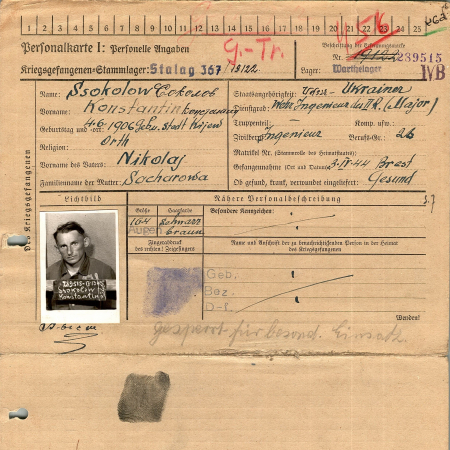 1 2 3 4 5 6 7 8 9 10 11 12 13 14 15 16 17 18 19 20 21 22 23 24 25
Personalkarte I: Personelle Angaben
G.-Tr.
Beschriftung der Erkennungsmarke
Kriegsgefangenen-Stammlager: Stalag 367
Nr. 19122 239515
Lager: Warthelager IVB
Name: Ssokolow Соколов
Staatsangehörigkeit: Ukrainer
Vorname: Konstantin
Dienstgrad: Ingenieur II R. (Major)
Geburtstag und -ort: 4.6.1906 Stadt Kiew
Truppenteil: Komp. usw.:
Religion: Orth
Zivilberuf: Ingenieur Berufs-Gr.: 26
Vorname des Vaters: Nikolaj
Matrikel Nr. (Stammrolle des Heimatstaates):
Gefangennahme (Ort und Datum): Brest
Familienname der Mutter: Sacharowa
Ob gesund, krank, verwundet eingeliefert: Gesund
Des Kriegsgefangenen
Lichtbild
Nähere Personalbeschreibung
Größe Haarfarbe Besondere Kennzeichen:
164 schwarz
Augen braun
Fingerabdruck des rechten! Zeigefingers
Name und Anschrift der zu benachrichtigenden Person in der Heimat des Kriegsgefangenen
239515
Ssokolow
Konstantin
Geb.
Bez.
D-
Wenden!
Gesperrt für besond. Einsatz